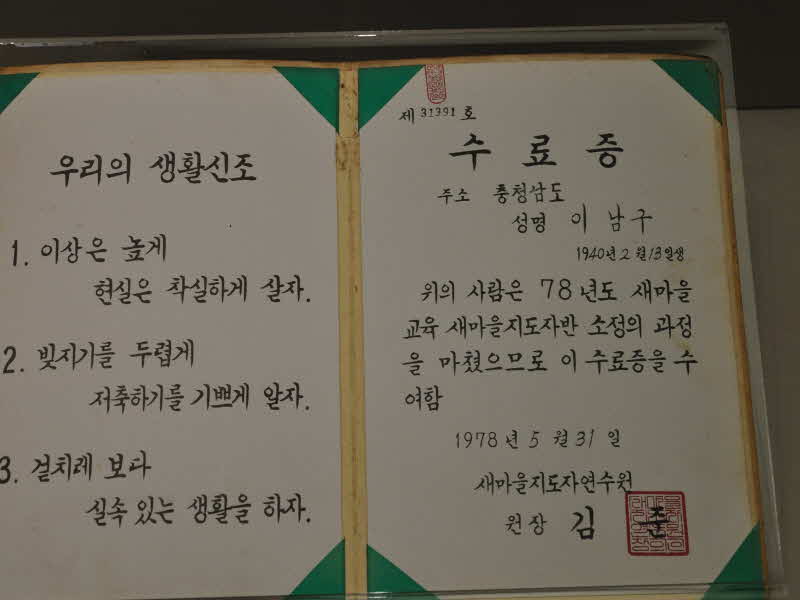 우리의 생활신조
1. 이상은 높게
현실은 착실하게 살자.
2. 빚지기를 두렵게
저축하기를 기쁘게 알자.
3. 겉치레 보다
실속 있는 생활을 하자.
제 31391 호
수 료 증
주소 충청남도
성명 이 남 구
1940년 2월 13일생
위의 사람은 78년도 새마을
교육 새마을지도자반 소정의 과정
을 마쳤으므로 이 수료증을 수
여함
1978년 5월 31일
새마을지도자연수원
원장 김 준